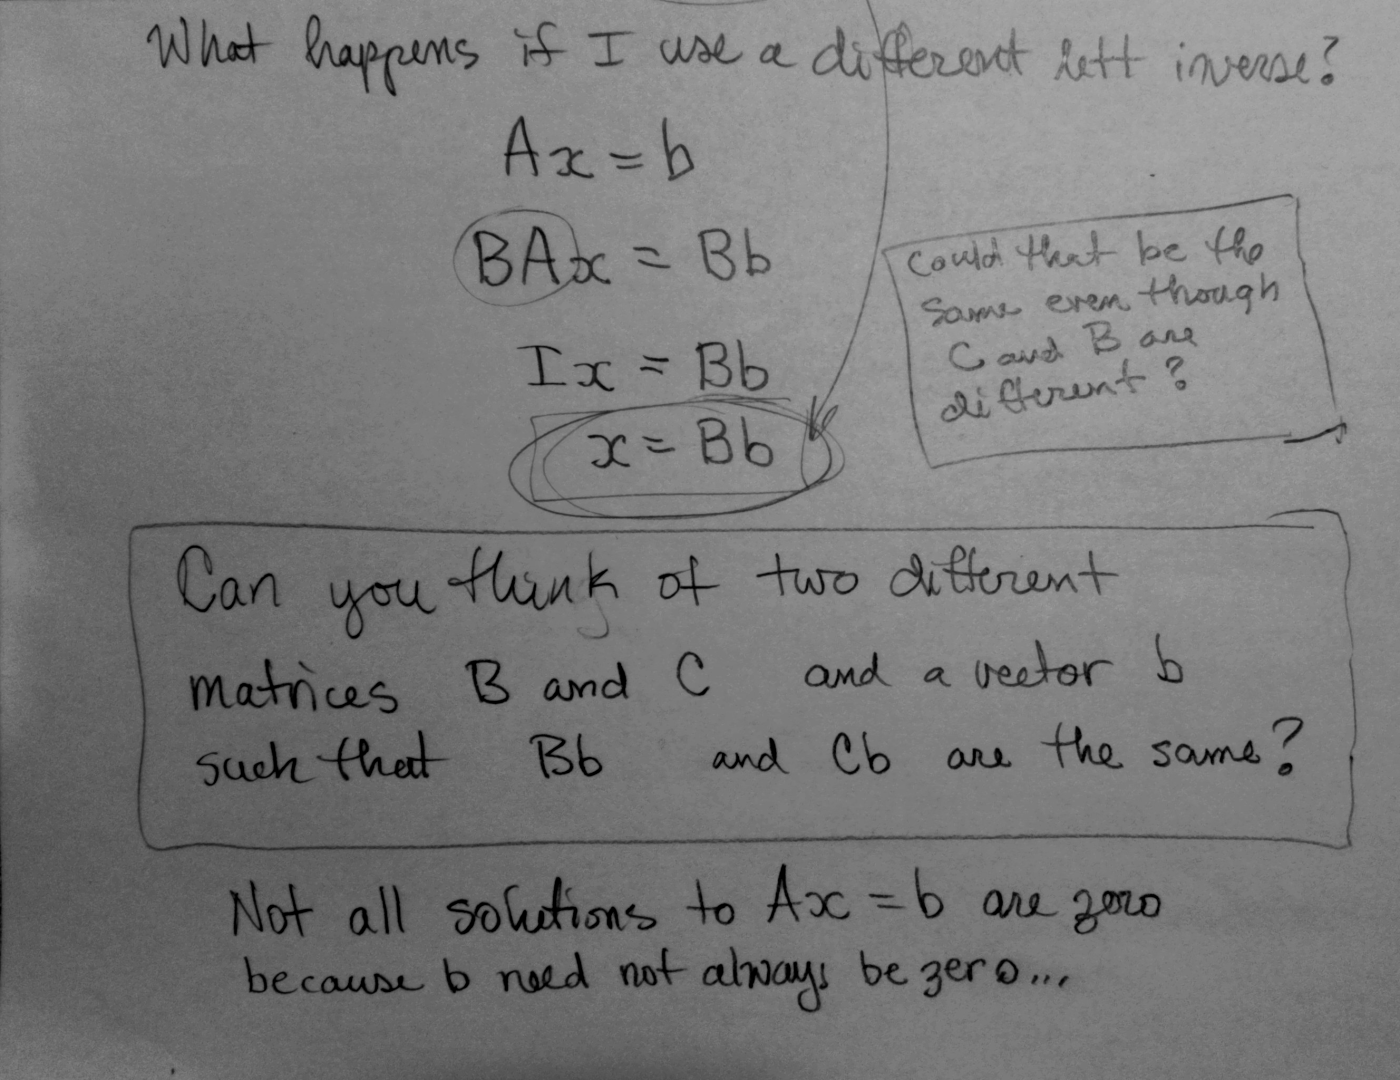 What happens if I use a different left inverse?
Ax = b
BAx = Bb
Ix = Bb
x = Bb
Could that be the
same even though
C and B are
different?
Can you think of two different
matrices B and C and a vector b
such that Bb and Cb are the same?
Not all solutions to Ax = b are zero
because b need not always be zero...